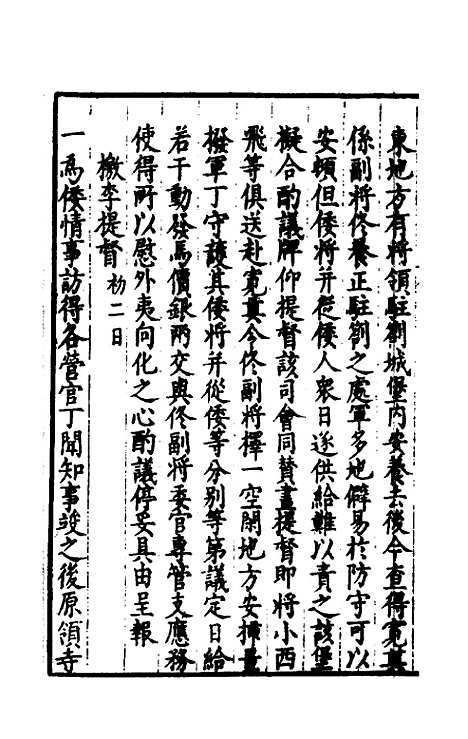 東地方有將領駐劄城堡内安養去後今查得寛奠
係副將佟養正駐劄之處軍多地僻易於防守可以
安頓但倭將并從倭人衆日逐供給難以責之該堡
擬合酌議牌仰提督該司會同贊畫提督即將小西
飛等俱送赴寛奠令佟副將擇一空閑地方安插量
撥軍丁守護其倭將并從倭等分别等第議定日給
若干動發馬價銀兩交與佟副將委官專管支應務
使得所以慰外夷向化之心酌議停妥具由呈報
檄李提督 初二日
一爲倭情事訪得各營官丁聞知事竣之後原領寺